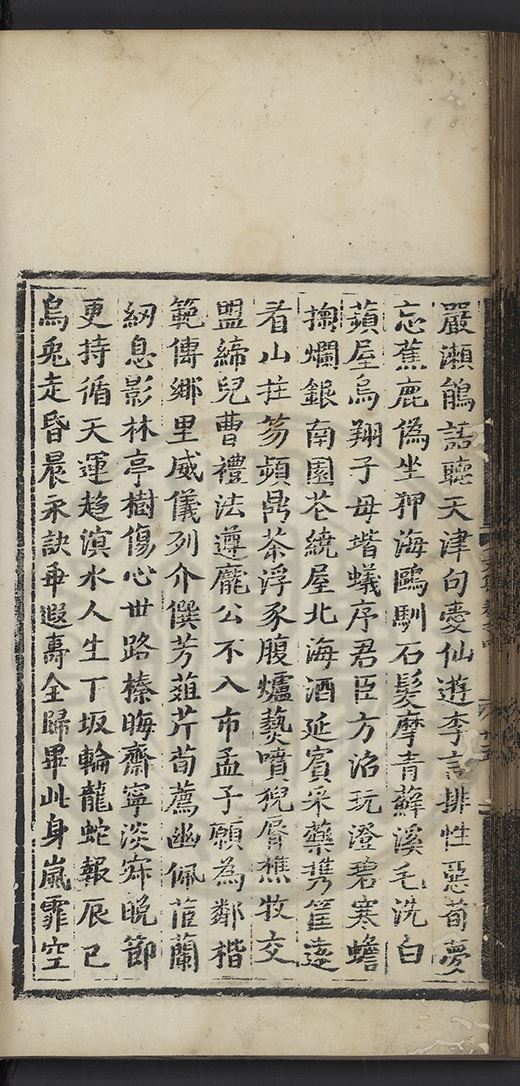 嚴瀨鵑話聽天津句愛仙遊李言排性惡荀夢
忘蕉鹿偽坐狎海鷗馴石髮摩青蘚溪毛洗白
蘋屋烏翔子母堦蟻序君臣方沼玩澄碧寒蟾
掬爛銀南園花繞屋北海酒延賓采藥携筐遠
看山拄笏頻鼎茶浮豕腹爐爇噴猊脣樵牧交
盟締兒曹禮法遵龐公不入市孟子願為鄰楷
範傳鄉里威儀列介僎芳葅芹荀薦幽佩茝蘭
紉息影林亭樹傷心世路榛晦齋寧淡寂晚節
更持循天運趍滇水人生下坂輪龍蛇報辰已
烏兎走昏晨永訣爭遐壽全歸畢此身嵐霏空